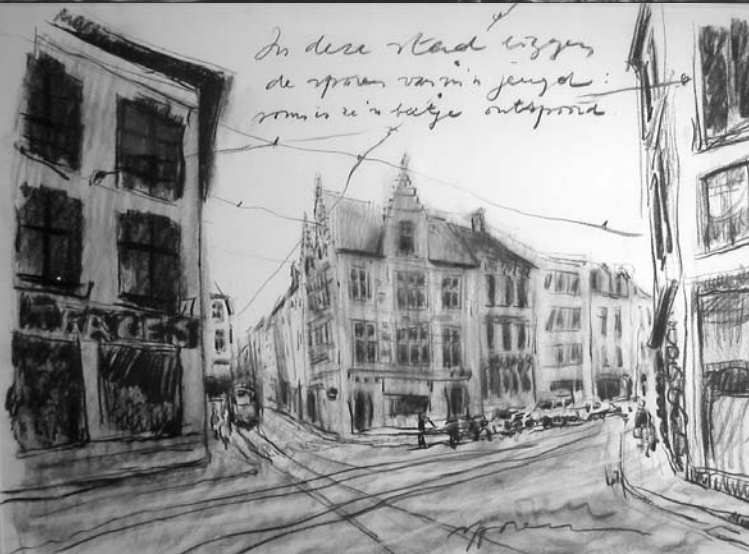 In deze stad liggen
de sporen van m'n jeugd:
soms is ze 'n beetje ontspoord
sporen